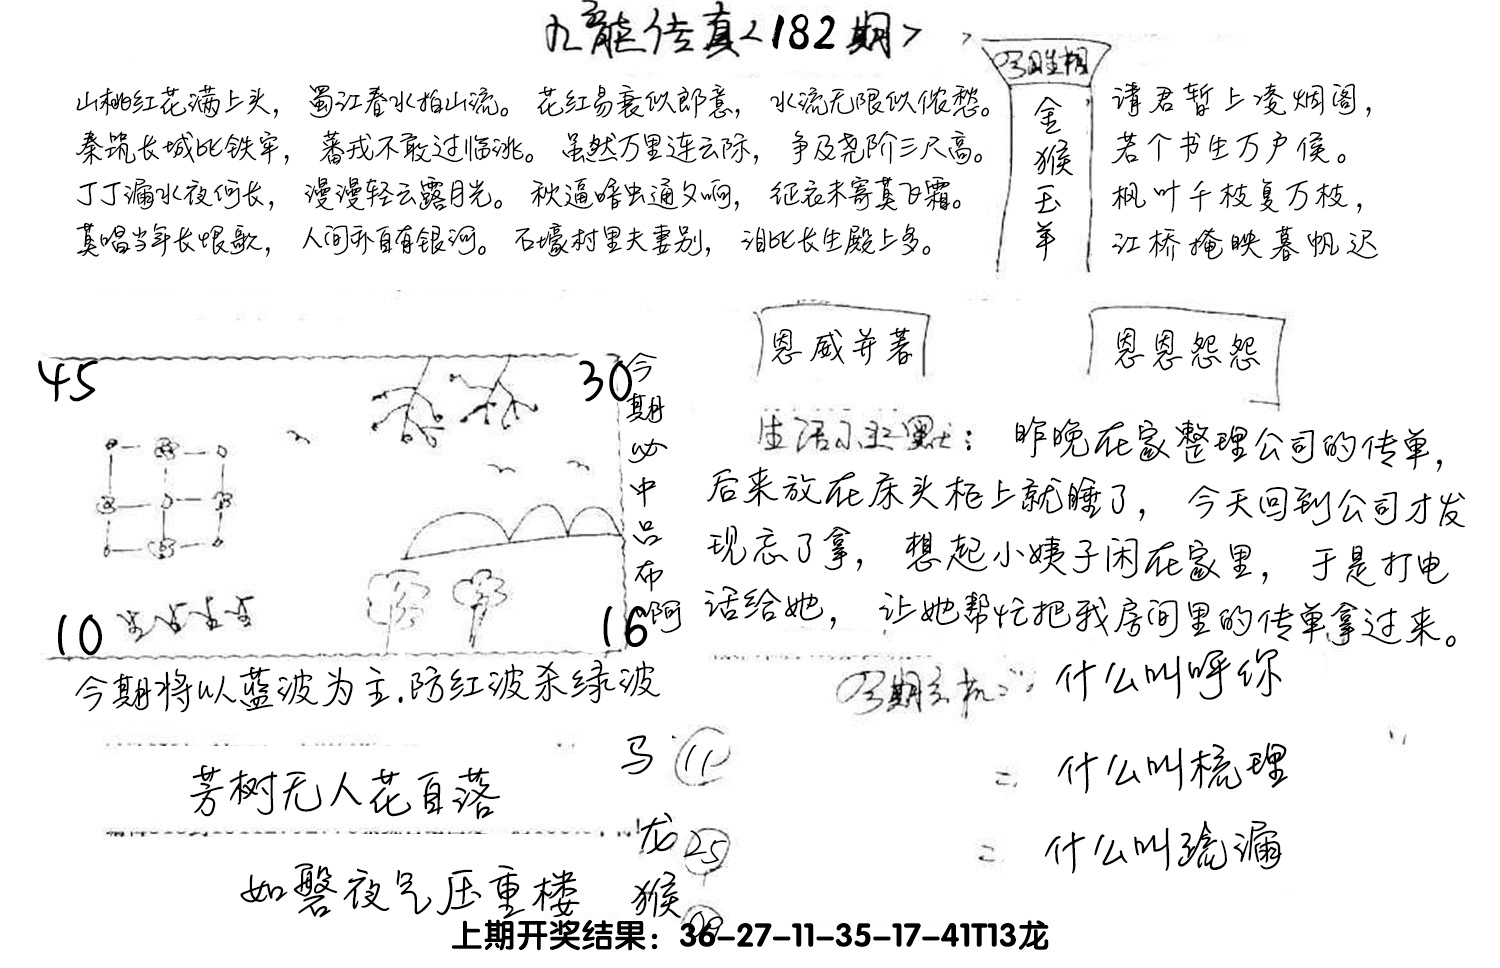 九龙传真<182期>
山桃红花满上头，蜀江春水拍山流。花红易衰似郎意，水流无限似侬愁。
秦筑长城比铁牢，蕃戎不敢过临洮。虽然万里连云际，争及尧阶三尺高。
丁丁漏水夜何长，漫漫轻云露月光。秋逼暗虫通夕响，征衣未寄莫飞霜。
莫唱当年长恨歌，人间亦自有银河。石壕村里夫妻别，泪比长生殿上多。
金猴玉羊
请君暂上凌烟阁，
若个书生万户侯。
枫叶千枝复万枝，
江桥掩映暮帆迟
恩威并著
恩恩怨怨
45
30
10
16
今期必中吕布啊
生活小幽默：昨晚在家整理公司的传单，
后来放在床头柜上就睡了，今天回到公司才发
现忘了拿，想起小姨子闲在家里，于是打电
话给她，让她帮忙把我房间里的传单拿过来。
今期将以蓝波为主.防红波杀绿波
什么叫呼你
什么叫梳理
什么叫疏漏
芳树无人花自落
如磐夜气压重楼
马 11
龙 25
猴 09
上期开奖结果：36-27-11-35-17-41T13龙